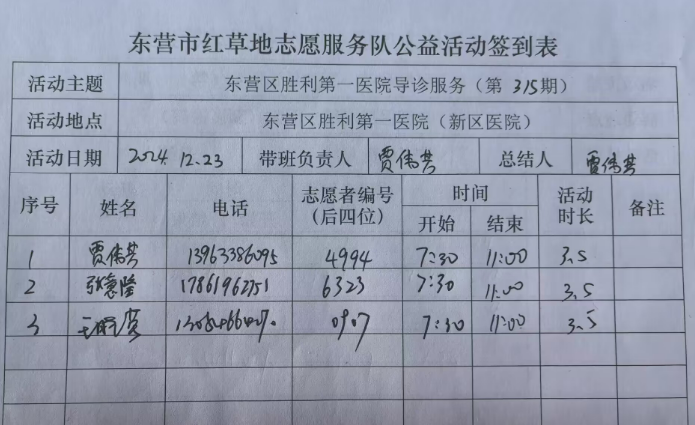 东营市红草地志愿服务队公益活动签到表
活动主题 东营区胜利第一医院导诊服务（第 315期）
活动地点 东营区胜利第一医院（新区医院）
活动日期 2024.12.23 带班负责人 贾伟芳 总结人 贾伟芳
序号 姓名 电话 志愿者编号（后四位） 时间 开始 结束 活动时长 备注
1 贾伟芳 13963386095 4994 7:30 11:00 3.5
2 张慧隆 17861962751 6323 7:30 11:00 3.5
3 0907 7:30 11:00 3.5